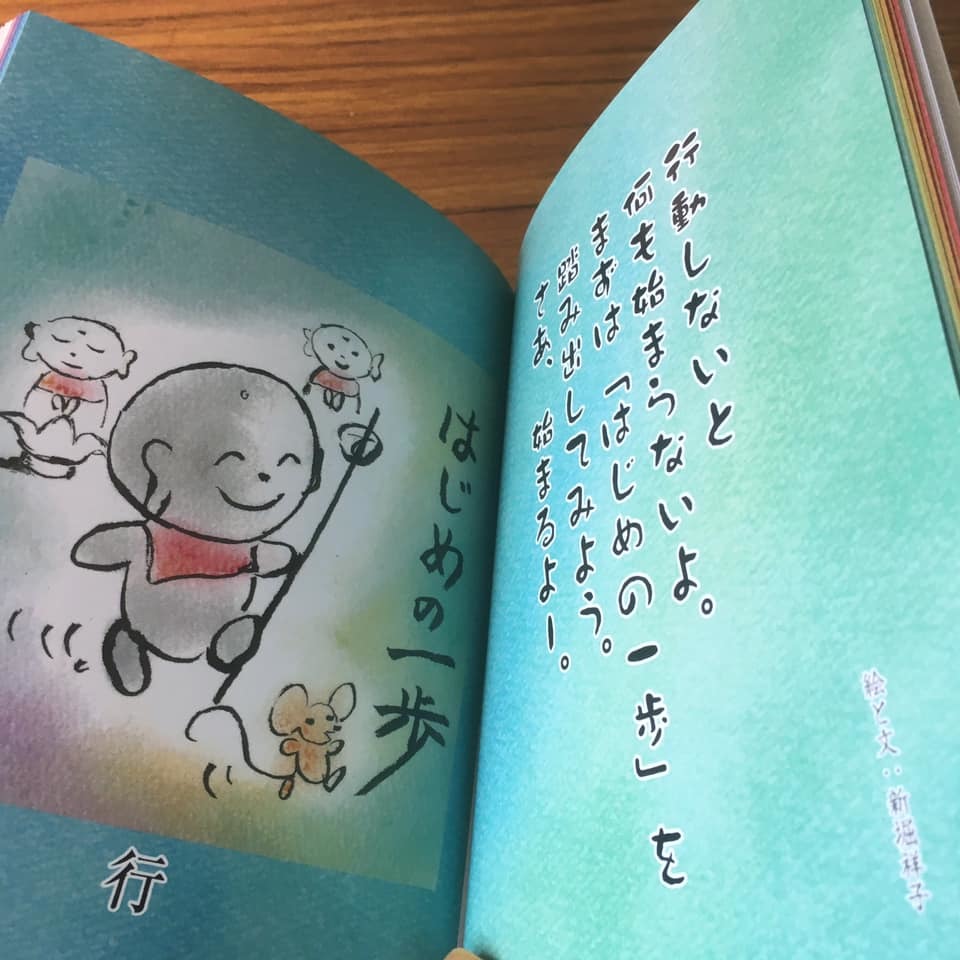 行動しないと
何も始まらないよ。
まずは「はじめの一歩」を
踏み出してみよう。
さあ、始まるよー。
絵と文:新堀祥子
はじめの一歩
行